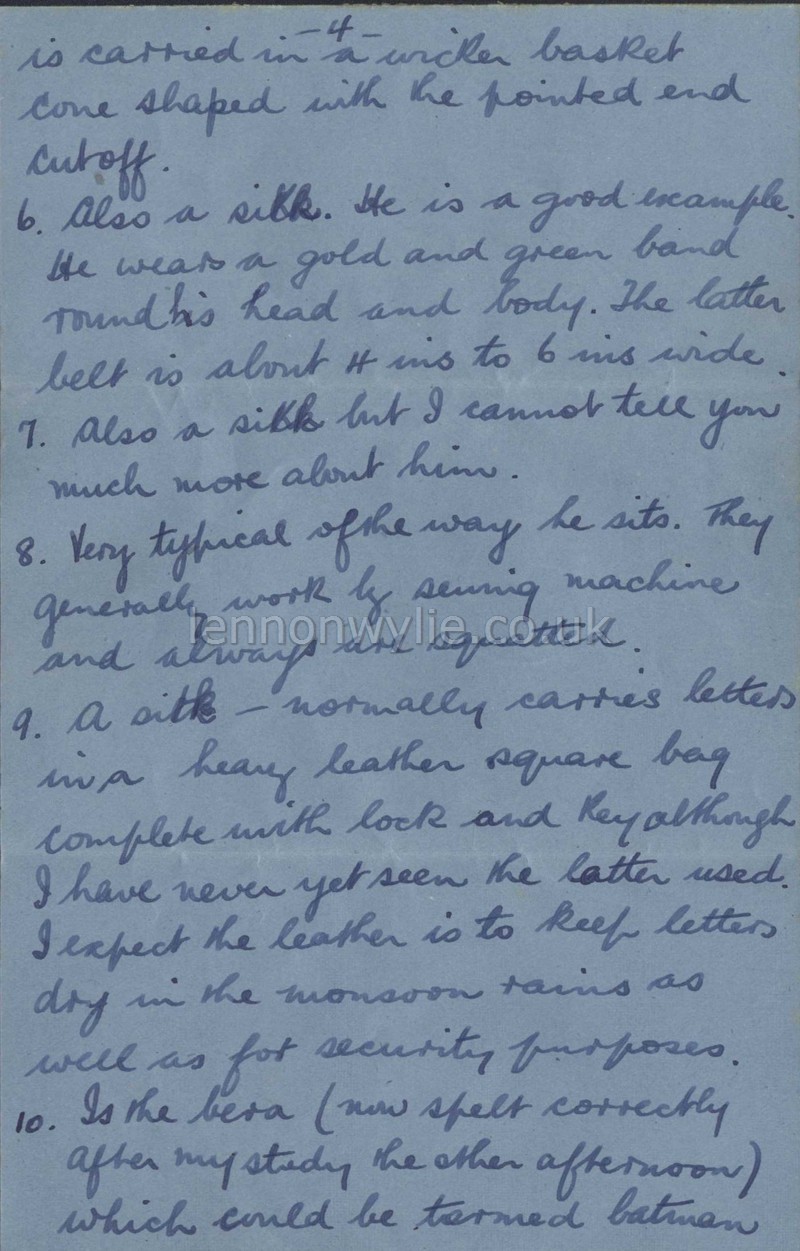 -4-
is carried in a wicker basket
cone shaped with the pointed end
cut off.
6. Also a sikh. He is a good example.
He wears a gold and green band
round his head and body. The latter
belt is about 4 ins to 6 ins wide.
7. Also a sikh but I cannot tell you
much more about him.
8. Very typical of the way he sits. They
generally work by sewing machine
lennonwylie.co.uk
and always are squatted.
9. A sikh - normally carries letters
in a heavy leather square bag
complete with lock and key although
I have never yet seen the latter used.
I expect the leather is to keep letters
dry in the monsoon rains as
well as for security purposes.
10. Is the bera (now spelt correctly
after my study the other afternoon)
which could be termed batman